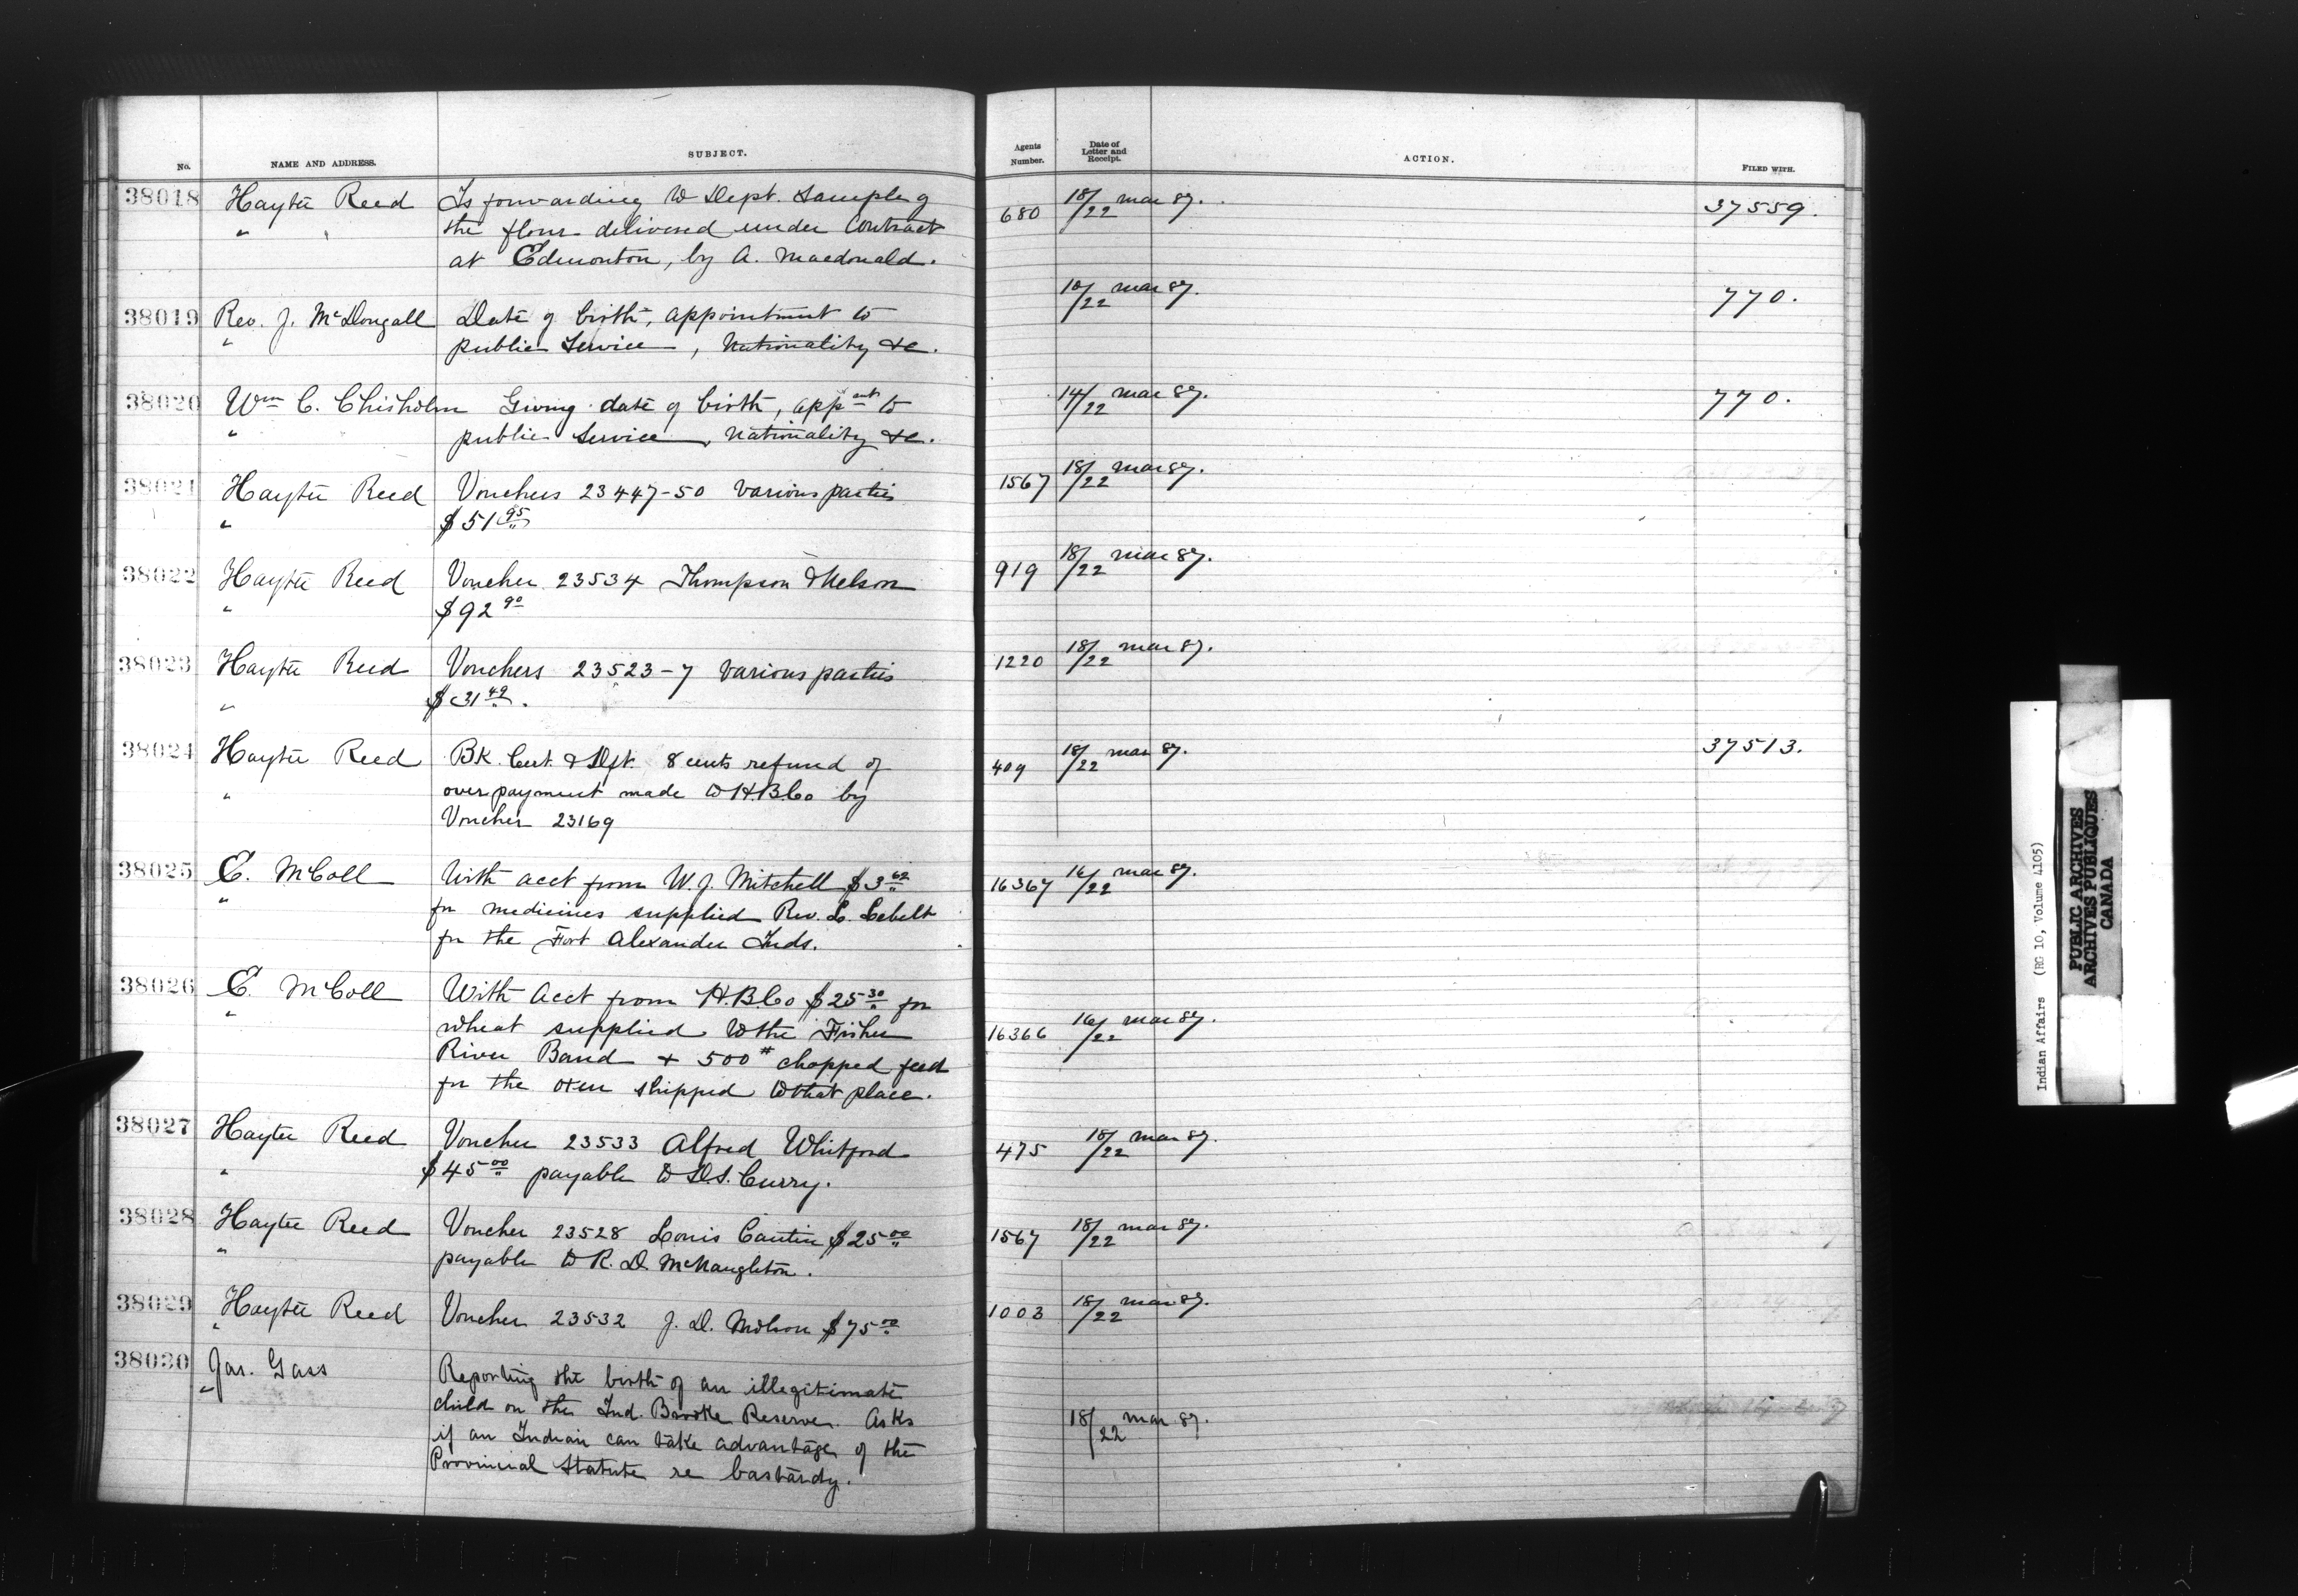 No. NAME AND ADDRESS. SUBJECT. Agents Number. Date of Letter and Receipt. ACTION. FILED WITH.
38018 Hayter Reed Is forwarding to Dept. Sample of 680 18/22 mar 87. 37559.
" the flour delivered under Contract
at Edmonton, by A. Macdonald.
38019 Rev. J. McDougall Date of birth, appointment to 10/22 mar 87. 770.
" public Service, Nationality &c.
38020 Wm C. Chisholm Giving date of birth, appmt to 14/22 mar 87. 770.
" public Service, Nationality &c.
38021 Hayter Reed Vouchers 23447-50 various parties 1567 18/22 mar 87.
" $51 95
38022 Hayter Reed Voucher 23534 Thompson & Nelson 919 18/22 mar 87.
" $92 90
38023 Hayter Reed Vouchers 23523-7 various parties 1220 18/22 mar 87.
" $31 49.
38024 Hayter Reed BK. Cert. & Dft. 8 cents refund of 409 18/22 mar 87. 37513.
" over payment made to H.B.Co by
Voucher 23169
38025 E. McColl With acct from W. J. Mitchell $3 62 16367 16/22 mar 87.
" for medicines supplied Rev. L. Lebelt
for the Fort Alexander Inds.
38026 E. McColl With Acct from H.B.Co $25 30 for 16366 16/22 mar 87.
" wheat supplied to the Fisher
River Band + 500 # chopped feed
for the oxen shipped to that place.
38027 Hayter Reed Voucher 23533 Alfred Whitford 475 18/22 mar 87.
" $45 00 payable to D.S. Curry.
38028 Hayter Reed Voucher 23528 Louis Cantin $25 00 1567 18/22 mar 87.
" payable to R. D. McNaughton.
38029 Hayter Reed Voucher 23532 J. D. $75 00 1003 18/22 mar 87.
"
38030 Jas. Gass Reporting the birth of an illegitimate 18/22 mar 87.
" child on the Ind. Brooke Reserve. Asks
if an Indian can take advantage of the
Provincial Statute re bastardy.
Indian Affairs (RG 10, Volume 4105)
PUBLIC ARCHIVES
ARCHIVES PUBLIQUES
CANADA